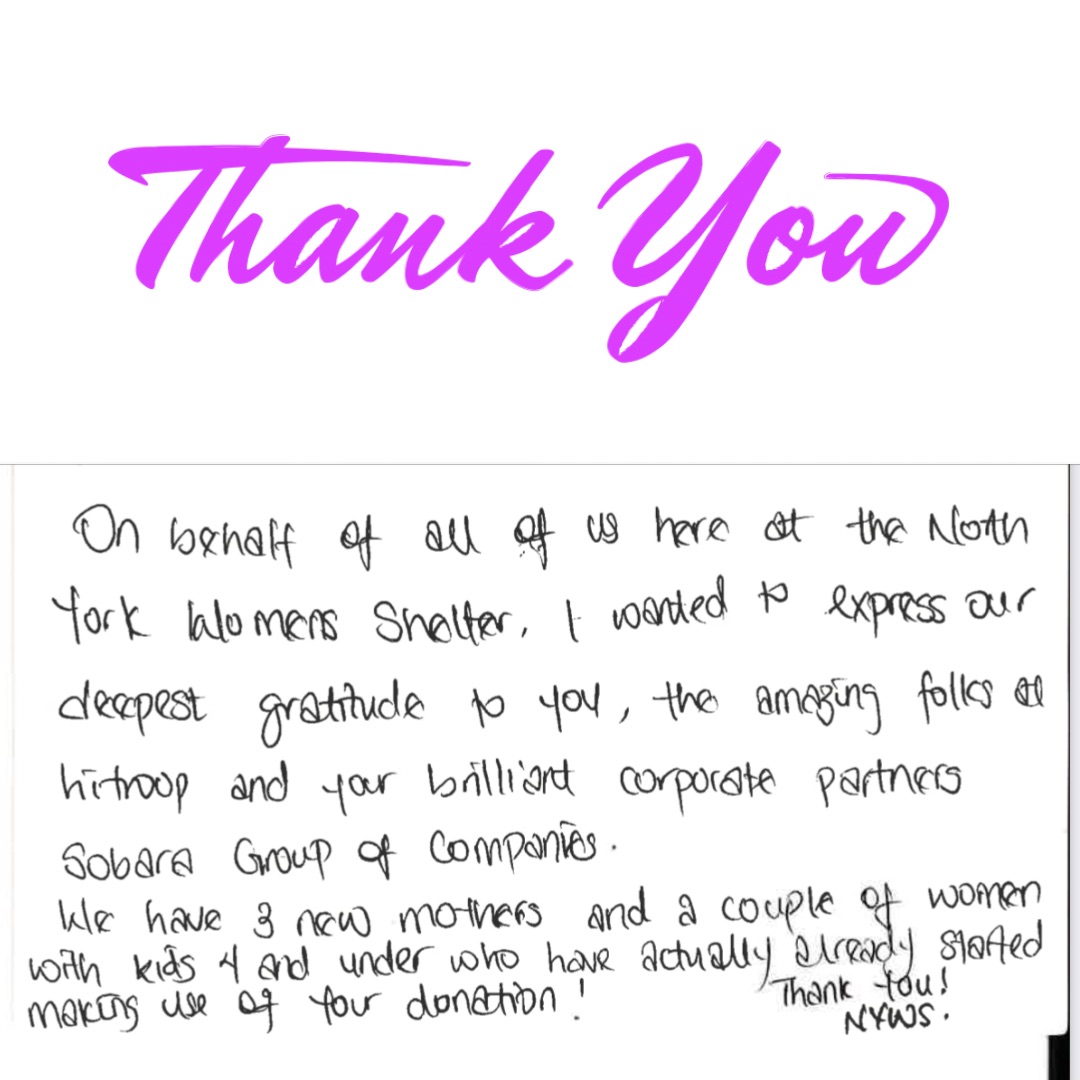 Thank You
On behalf of all of us here at the North
York Womens Shelter, I wanted to express our
deepest gratitude to you, the amazing folks at
hitroop and your brilliant corporate partners
Sobara Group of Companies.
We have 3 new mothers and a couple of women
with kids 4 and under who have actually already started
making use of your donation!
Thank You!
NYWS.